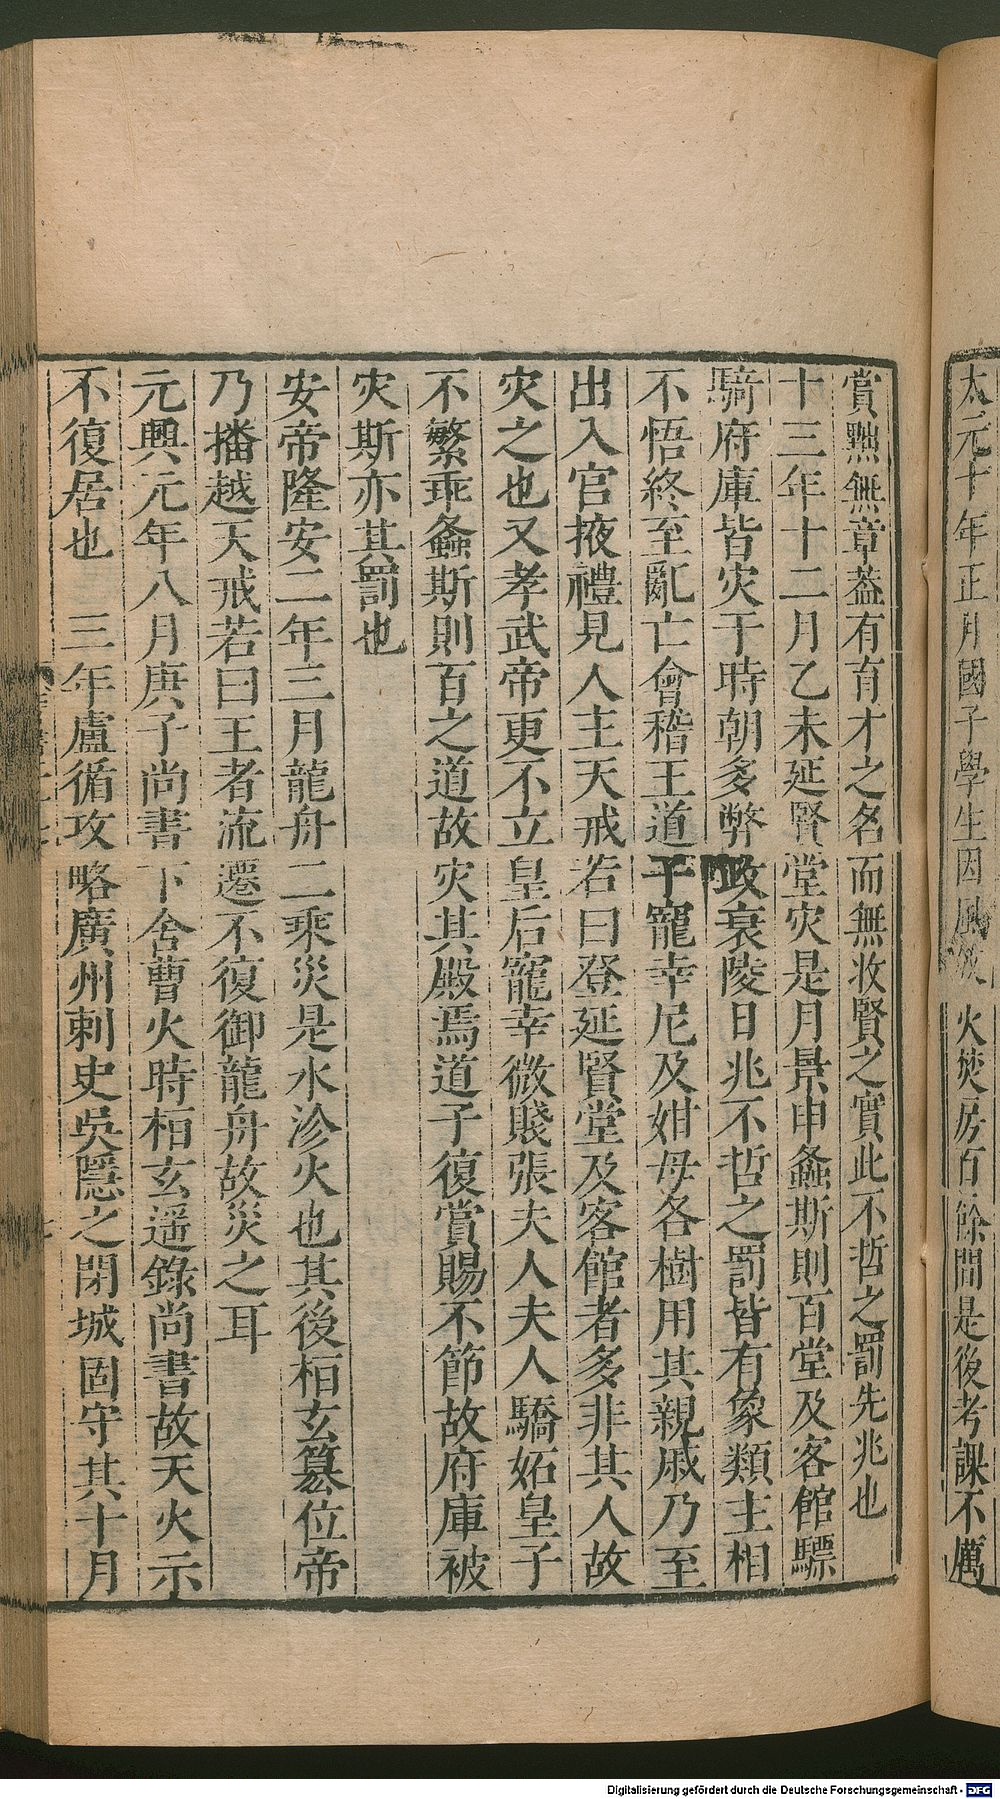 太元十年正月國子學生因風放火焚房百餘間是後考課不厲
賞黜無章蓋有育才之名而無收賢之實此不哲之罰先兆也
十三年十二月乙未延賢堂灾是月景申螽斯則百堂及客館驃
騎府庫皆灾于時朝多弊政衰陵日兆不哲之罰皆有象類主相
不悟終至亂亡會稽王道子寵幸尼及姏母各樹用其親戚乃至
出入官掖禮見人主天戒若曰登延賢堂及客館者多非其人故
灾之也又孝武帝更不立皇后寵幸微賤張夫人夫人驕妬皇子
不繁乖螽斯則百之道故灾其殿焉道子復賞賜不節故府庫被
灾斯亦其罰也
安帝隆安二年三月龍舟二乘災是水沴火也其後桓玄篡位帝
乃播越天戒若曰王者流遷不復御龍舟故災之耳
元興元年八月庚子尚書下舍曹火時桓玄遥錄尚書故天火示
不復居也　三年盧循攻略廣州刺史吳隱之閉城固守其十月
Digitalisierung gefördert durch die Deutsche Forschungsgemeinschaft - DFG